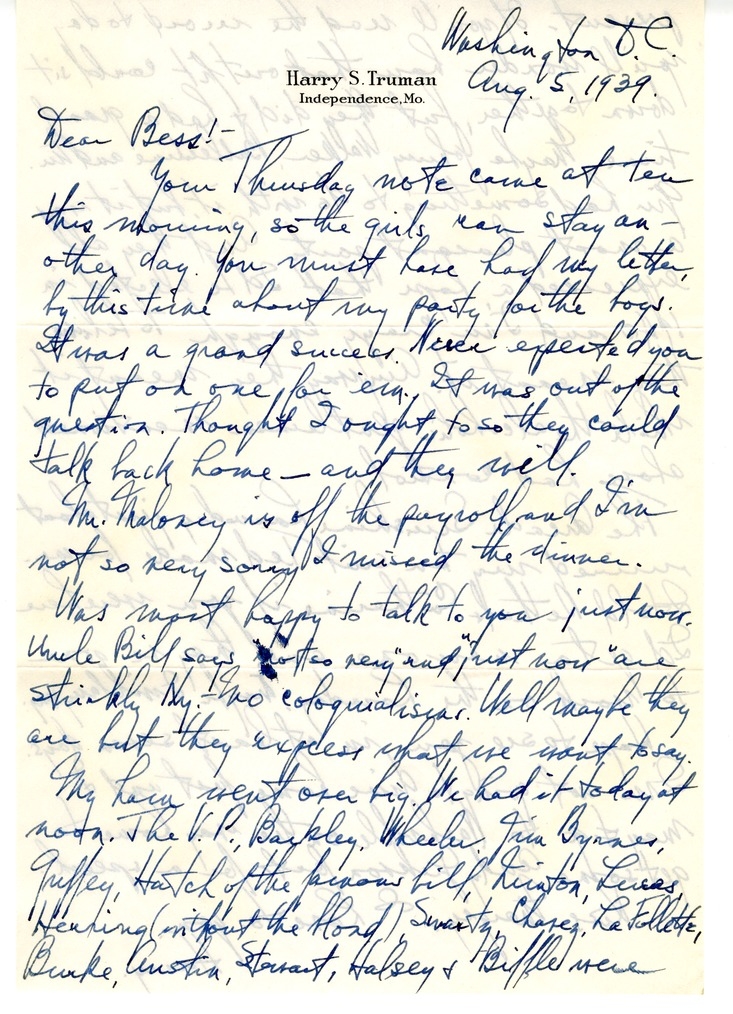 Washington D.C.
Aug. 5, 1939.
Harry S. Truman
Independence, Mo.
Dear Bess:-
Your Thursday note came at ten
this morning, so the girls can stay an-
other day. You must have had my letter,
by this time about my party for the boys.
It was a grand success. Never expected you
to put on one for 'em. It was out of the
question. Thought I ought to so they could
talk back home - and they will.
Mr. Maloney is off the payroll and I'm
not so very sorry I missed the dinner.
Was most happy to talk to you just now.
Uncle Bill says "not so very" and "just now" are
strickly Ky. & Mo coloquialisms. Well maybe they
are but they express what we want to say.
My ham went over big. We had it today at
noon. The V.P., Barkley, Wheeler, Jim Byrnes,
Guffey, Hatch of the famous bill, Minton, Lucas,
Herring (without the blond), Swartz, Chavez, La Follette,
Burke, Austin, Stewart, Halsey & Biffle were